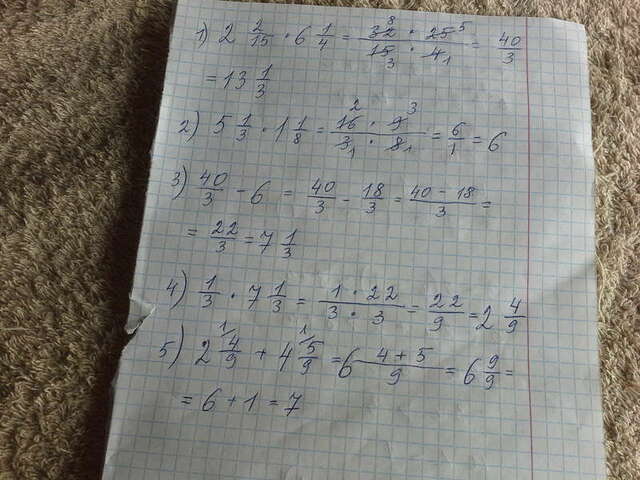 1) 2 2/15 · 6 1/4 = 32 8 · 25 5 / 15 3 · 4 1 = 40/3
= 13 1/3
2) 5 1/3 · 1 1/8 = 16 2 · 9 3 / 3 1 · 8 1 = 6/1 = 6
3) 40/3 - 6 = 40/3 - 18/3 = 40 - 18 / 3 =
= 22/3 = 7 1/3
4) 1/3 · 7 1/3 = 1 · 22 / 3 · 3 = 22/9 = 2 4/9
5) 2 1/ 4/9 + 4 1/ 5/9 = 6 4 + 5 / 9 = 6 9/9 =
= 6 + 1 = 7